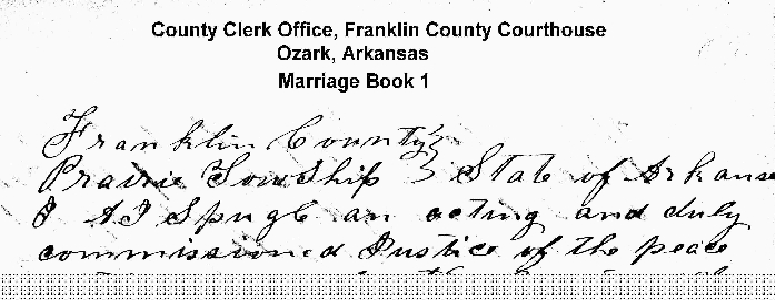 County Clerk Office, Franklin County Courthouse
Ozark, Arkansas
Marriage Book 1
Franklin County }
Prairie Township } State of Arkansas
I A J Spugle an acting and duly
commissioned Justice of the peace